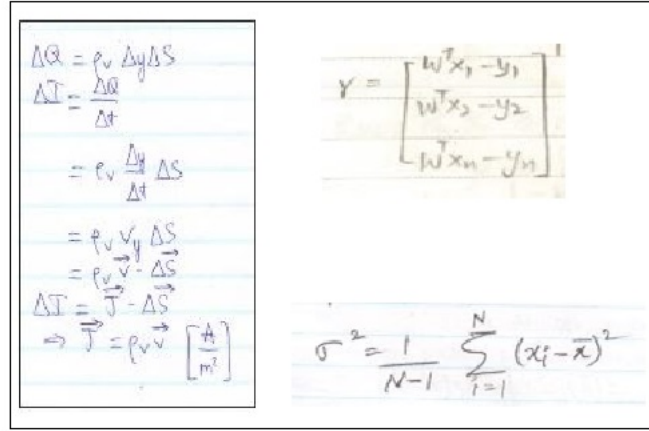 ΔQ = ρᵥ Δy ΔS
ΔI = ΔQ / Δt
= ρᵥ Δy / Δt ΔS
= ρᵥ vᵧ ΔS
= ρᵥ v⃗ · ΔS⃗
ΔI = J⃗ · ΔS⃗
⇒ J⃗ = ρᵥ v⃗ [A / m²]
γ = [
wᵀx₁ − y₁
wᵀx₂ − y₂
wᵀxₙ − yₙ
]
σ² = 1 / (N−1) Σ_{i=1}^{N} (xᵢ − x̄)²